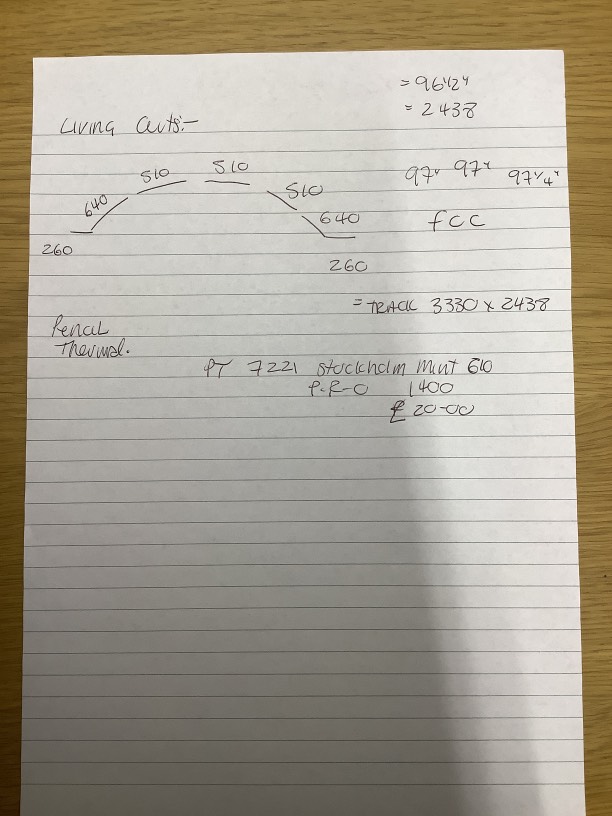 = 96 1/2"
= 2438
Living Cuts:-
510 510
640 510
640
260
260
97" 97" 97 1/4"
fcc
= TRACK 3330 x 2438
Pencil
Thermal.
PT 7221 Stockholm Mint 610
P.R-O 1400
£ 20-00